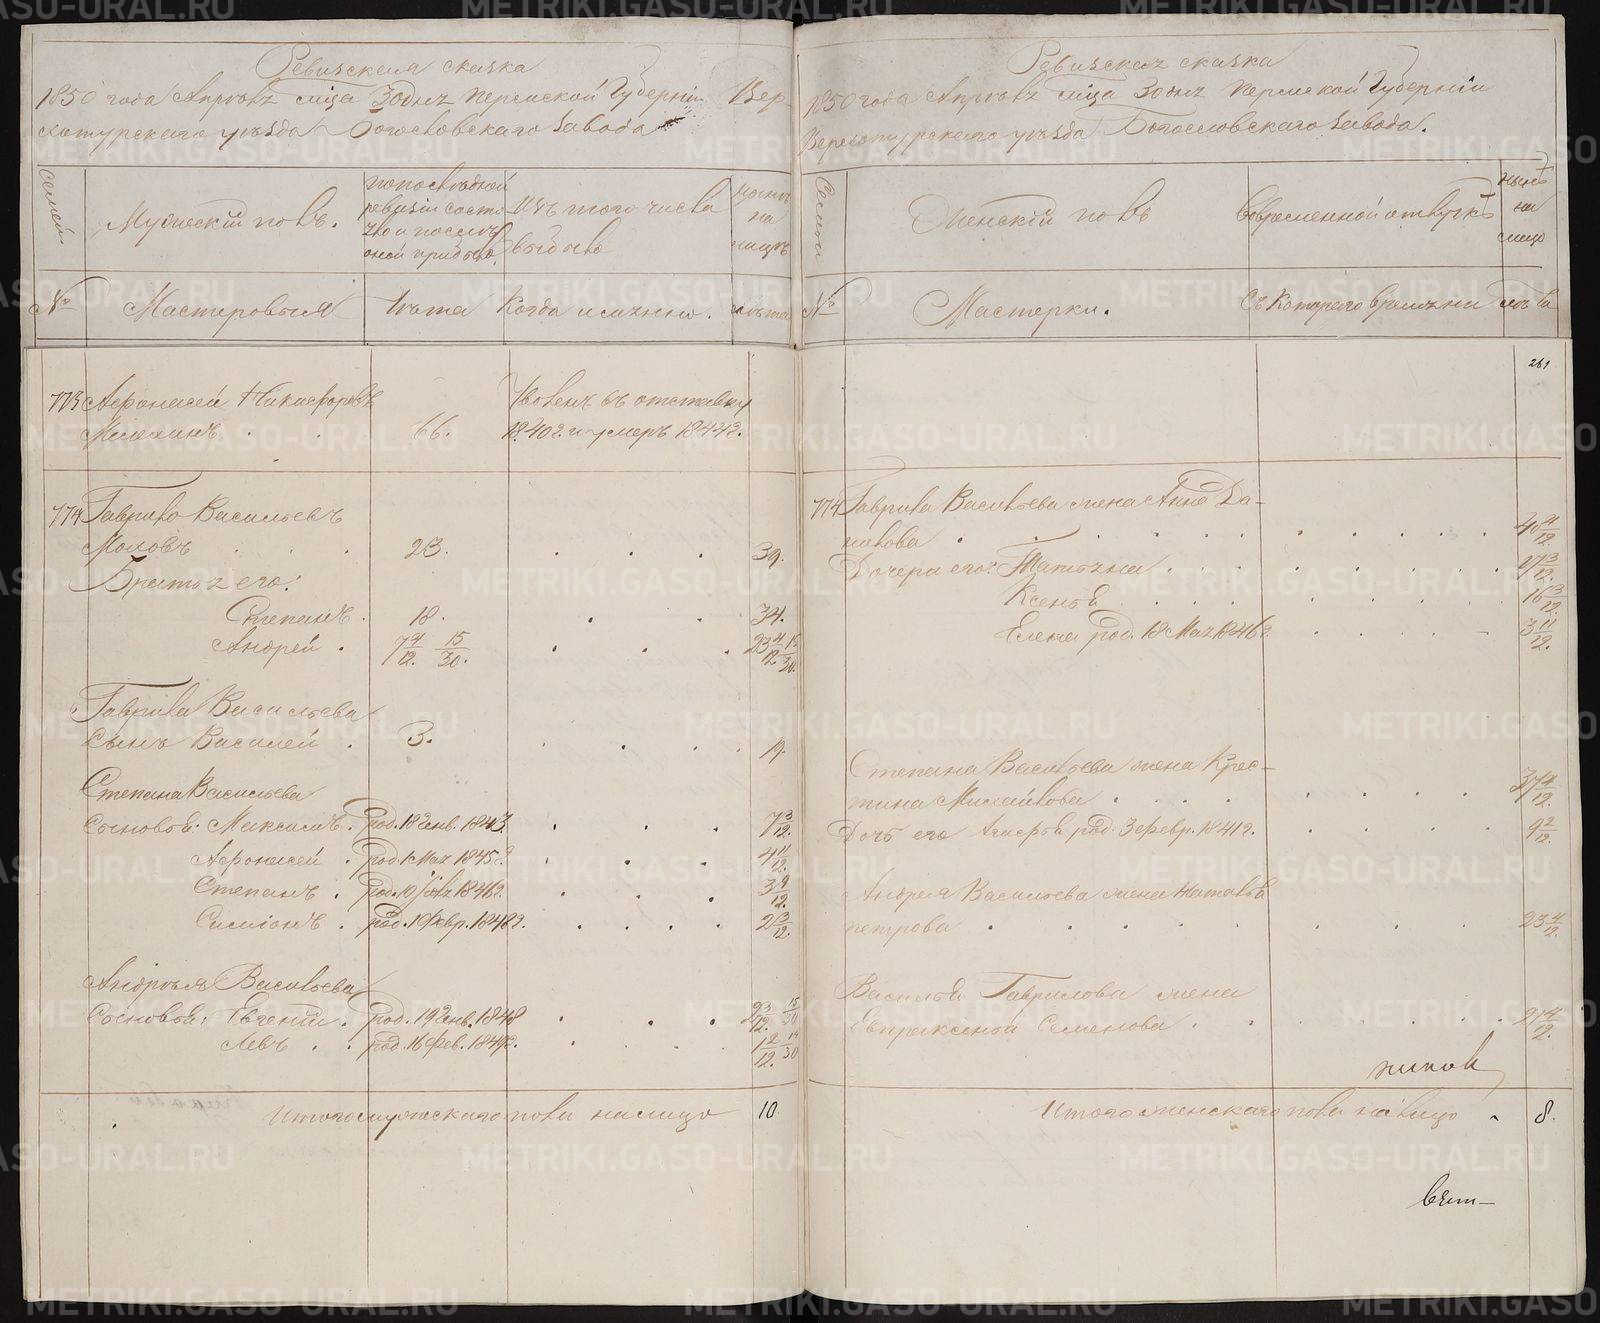 Ревизская сказка
1850 года Апреля м̃ца 30 дня Пермской Губернiи Вер-
хотурскаго уѣзда Богословскаго Завода
Семьи
Мужескiй полъ.
по последней
ревизiи состо
яло и после
оной прибыло
Изъ того числа
выбыло
ныне
на
лицо
№
Мастеровыя
Лѣта
Когда именно.
лѣта
773 Афонасей Никифоровъ
66.
Уволенъ въ отставку
1840 г. и умеръ 1844 г.
774 Гаврило Васильевъ
Моловъ 23. 39.
Братья его:
Степанъ. 18. 34.
Андрей. 7 4/12. 15/30. 23 4/12 15/30.
Гаврила Васильева
Сынъ Василей. 3. 19.
Степана Васильева
Сыновья: Максимъ. род. 18 Янв. 1843. 7 3/12.
Афонасей. род. 1 Мая 1845 г. 4 11/12.
Степанъ. род. 10 Юля 1846 г. 3 9/12.
Симiонъ. род. 1 Февр. 1848 г. 2 3/12.
Андрея Васильева
Сыновья: Евгенiй. род. 19 Янв. 1848 2 3/12. 15/30
Левъ. род. 16 Фев. 1849 г. 1 2/12. 14/30
Итого мужескаго пола на лицо 10
Ревизская сказка
1850 года Апреля м̃ца 30 дня Пермской Губернiи
Верхотурскаго уѣзда Богословскаго Завода.
Семьи
Женскiй полъ
Вовременной отлучкѣ
ныне
на
лицо
№
Мастерки.
Съ Котораго времени
лѣта
261
774 Гаврила Васильева жена Анна Да-
нилова. 40 4/12
Дочери его: Татьяна. 17 3/12.
Ксенья. 16 3/12.
Елена род. 18 Мая 1846 г. 3 11/12.
Степана Васильева жена Крес-
тина Михайлова. 37 4/12.
Дочь его род. 3 Февр. 1841 г. 9 2/12.
Андрея Васильева жена Наталья
Петрова. 23 4/12.
Василья Гаврилова жена
Евпраксенья Семенова. 21 4/12.
Итого женскаго пола на лицо. 8.
METRIKI.GASO-URAL.RU